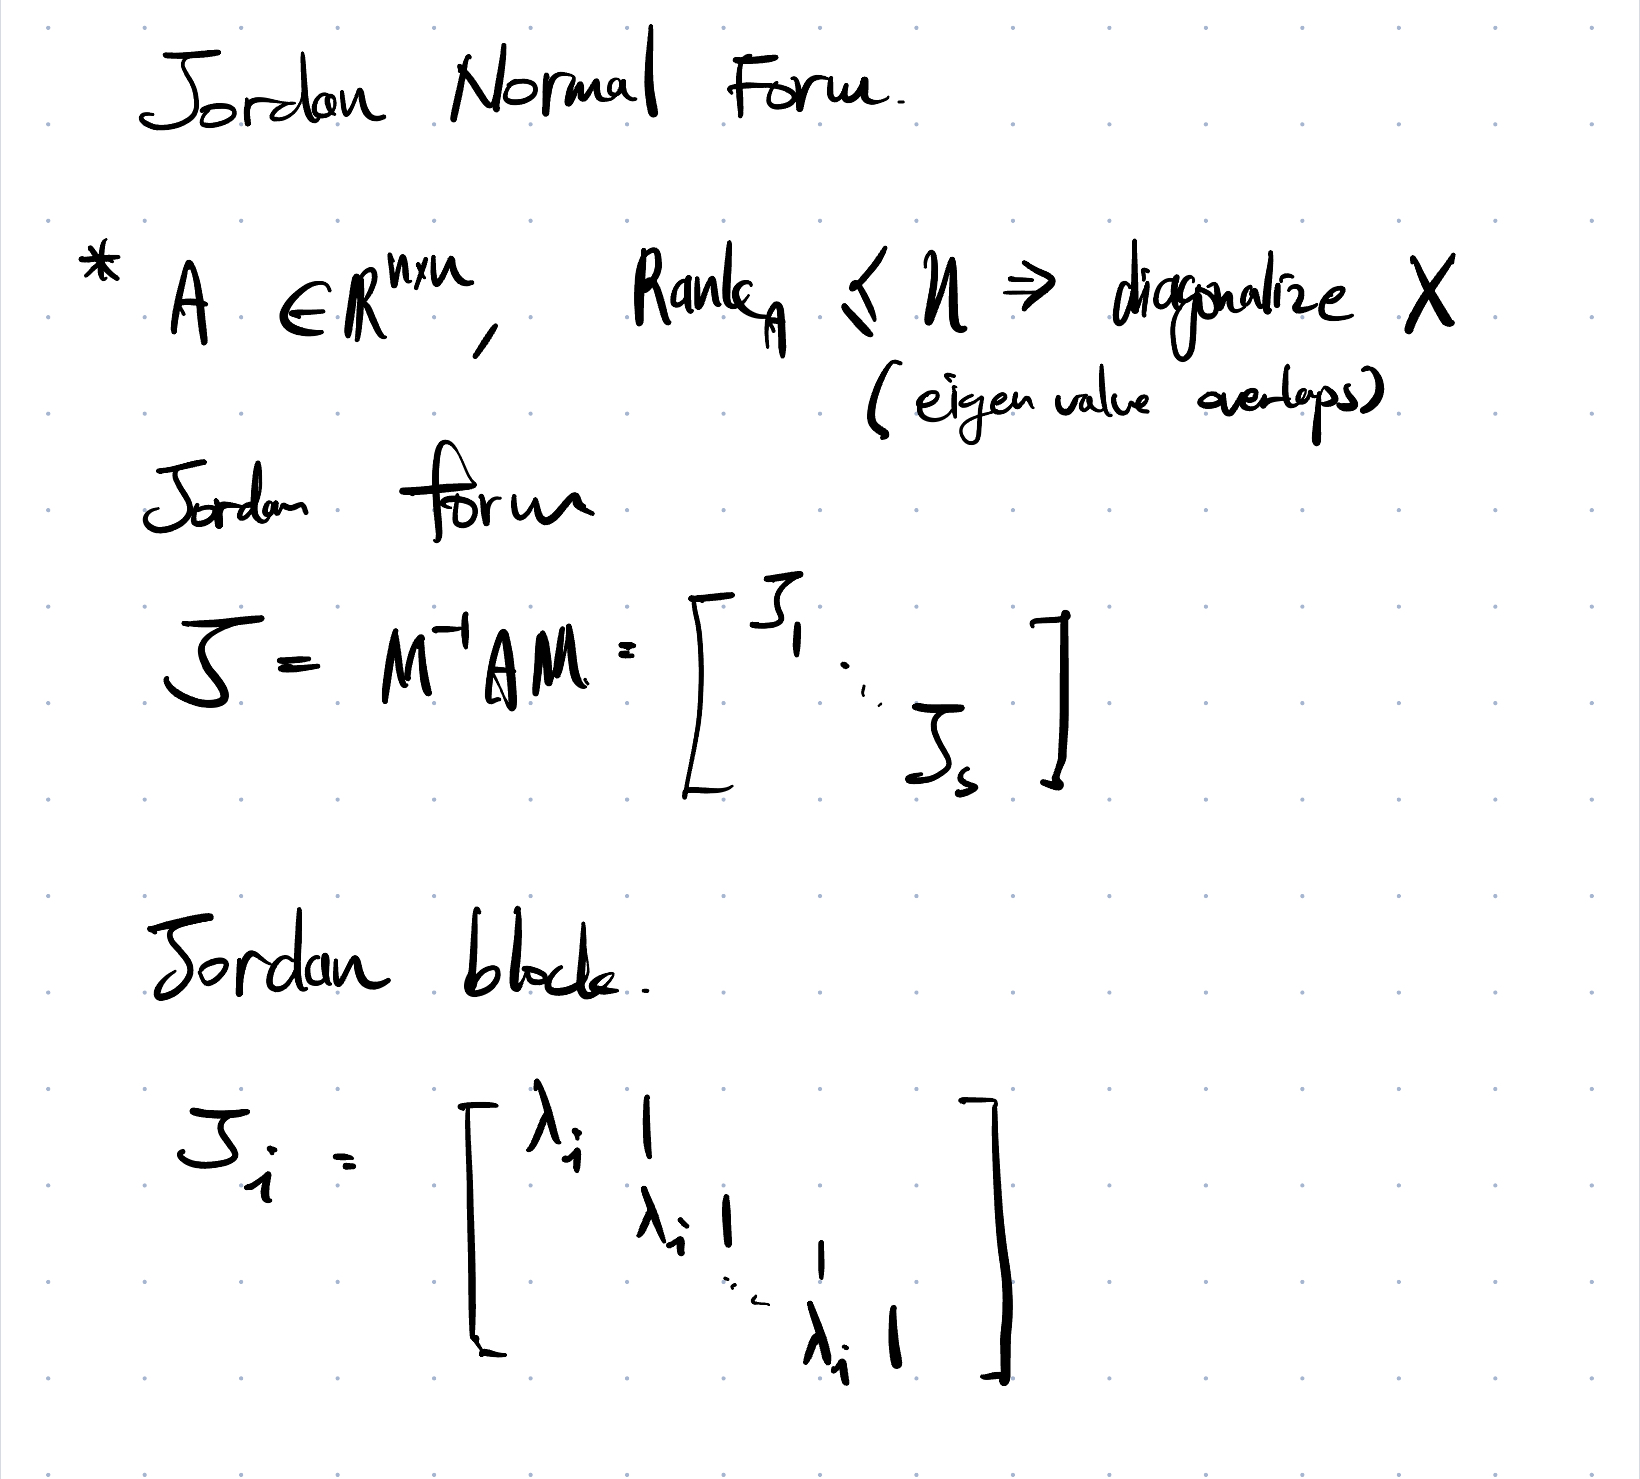 Jordan Normal Form.
* A ∈ ℝⁿˣⁿ, Rank_A ≤ n ⇒ diagonalize X
(eigen value overlaps)
Jordan form
J = M⁻¹AM = [J₁ ⋱ Jₛ]
Jordan block.
Jᵢ = [λᵢ 1
λᵢ 1
⋱ 1
λᵢ 1]